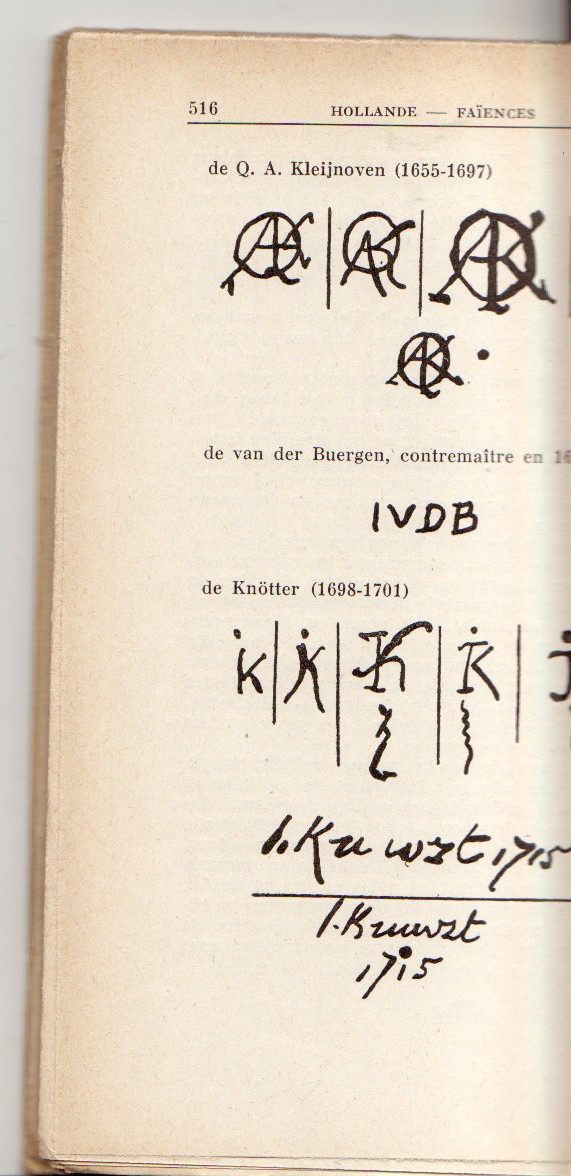 516 HOLLANDE — FAÏENCES
de Q. A. Kleijnoven (1655-1697)
AK AK AK
AK
de van der Buergen, contremaître en 16
IVDB
de Knötter (1698-1701)
K K K K
1715
1715